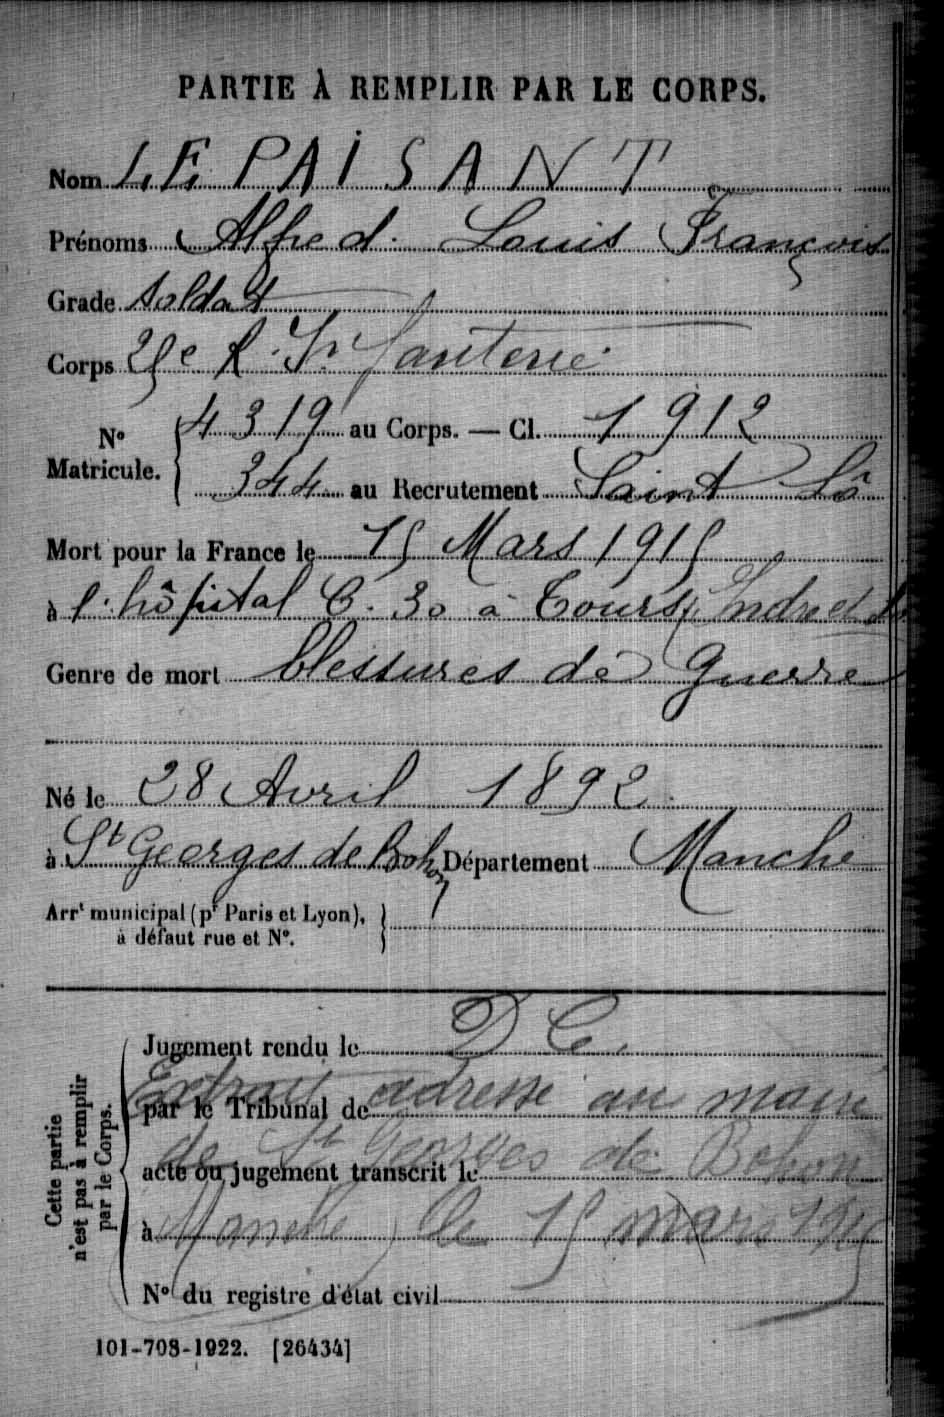 PARTIE À REMPLIR PAR LE CORPS.
Nom LE PAISANT
Prénoms Alfred Louis François
Grade Soldat
Corps 25e R. Infanterie
No Matricule. 4319 au Corps. — Cl. 1912
344 au Recrutement Saint Lô
Mort pour la France le 15 Mars 1915
à l'hôpital C. 30 à Tours (Indre et
Genre de mort blessures de Guerre
Né le 28 Avril 1892
à St Georges de Bohon Département Manche
Arrt municipal (pr Paris et Lyon),
à défaut rue et No.
Cette partie n'est pas à remplir par le Corps.
Jugement rendu le D C.
Extrait adressé au maire
par le Tribunal de
de St Georges de Bohon
acte ou jugement transcrit le
à
(Manche) le 15 mars 1915
No du registre d'état civil
101-708-1922. [26434]